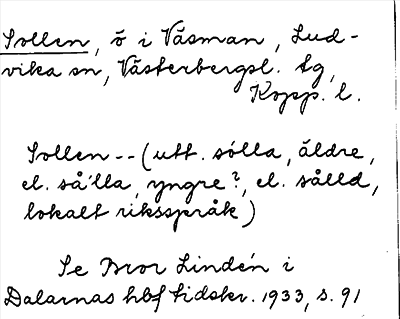 Sollen, ö i Väsman, Lud-
vika sn, Västerbergsl. tg,
Kopp. l.
Sollen -- (utt. sólla, äldre,
el. så´lla, yngre?, el. sålld,
lokalt riksspråk)
Se Bror Lindén i
Dalarnas hbf tidskr. 1933, s. 91